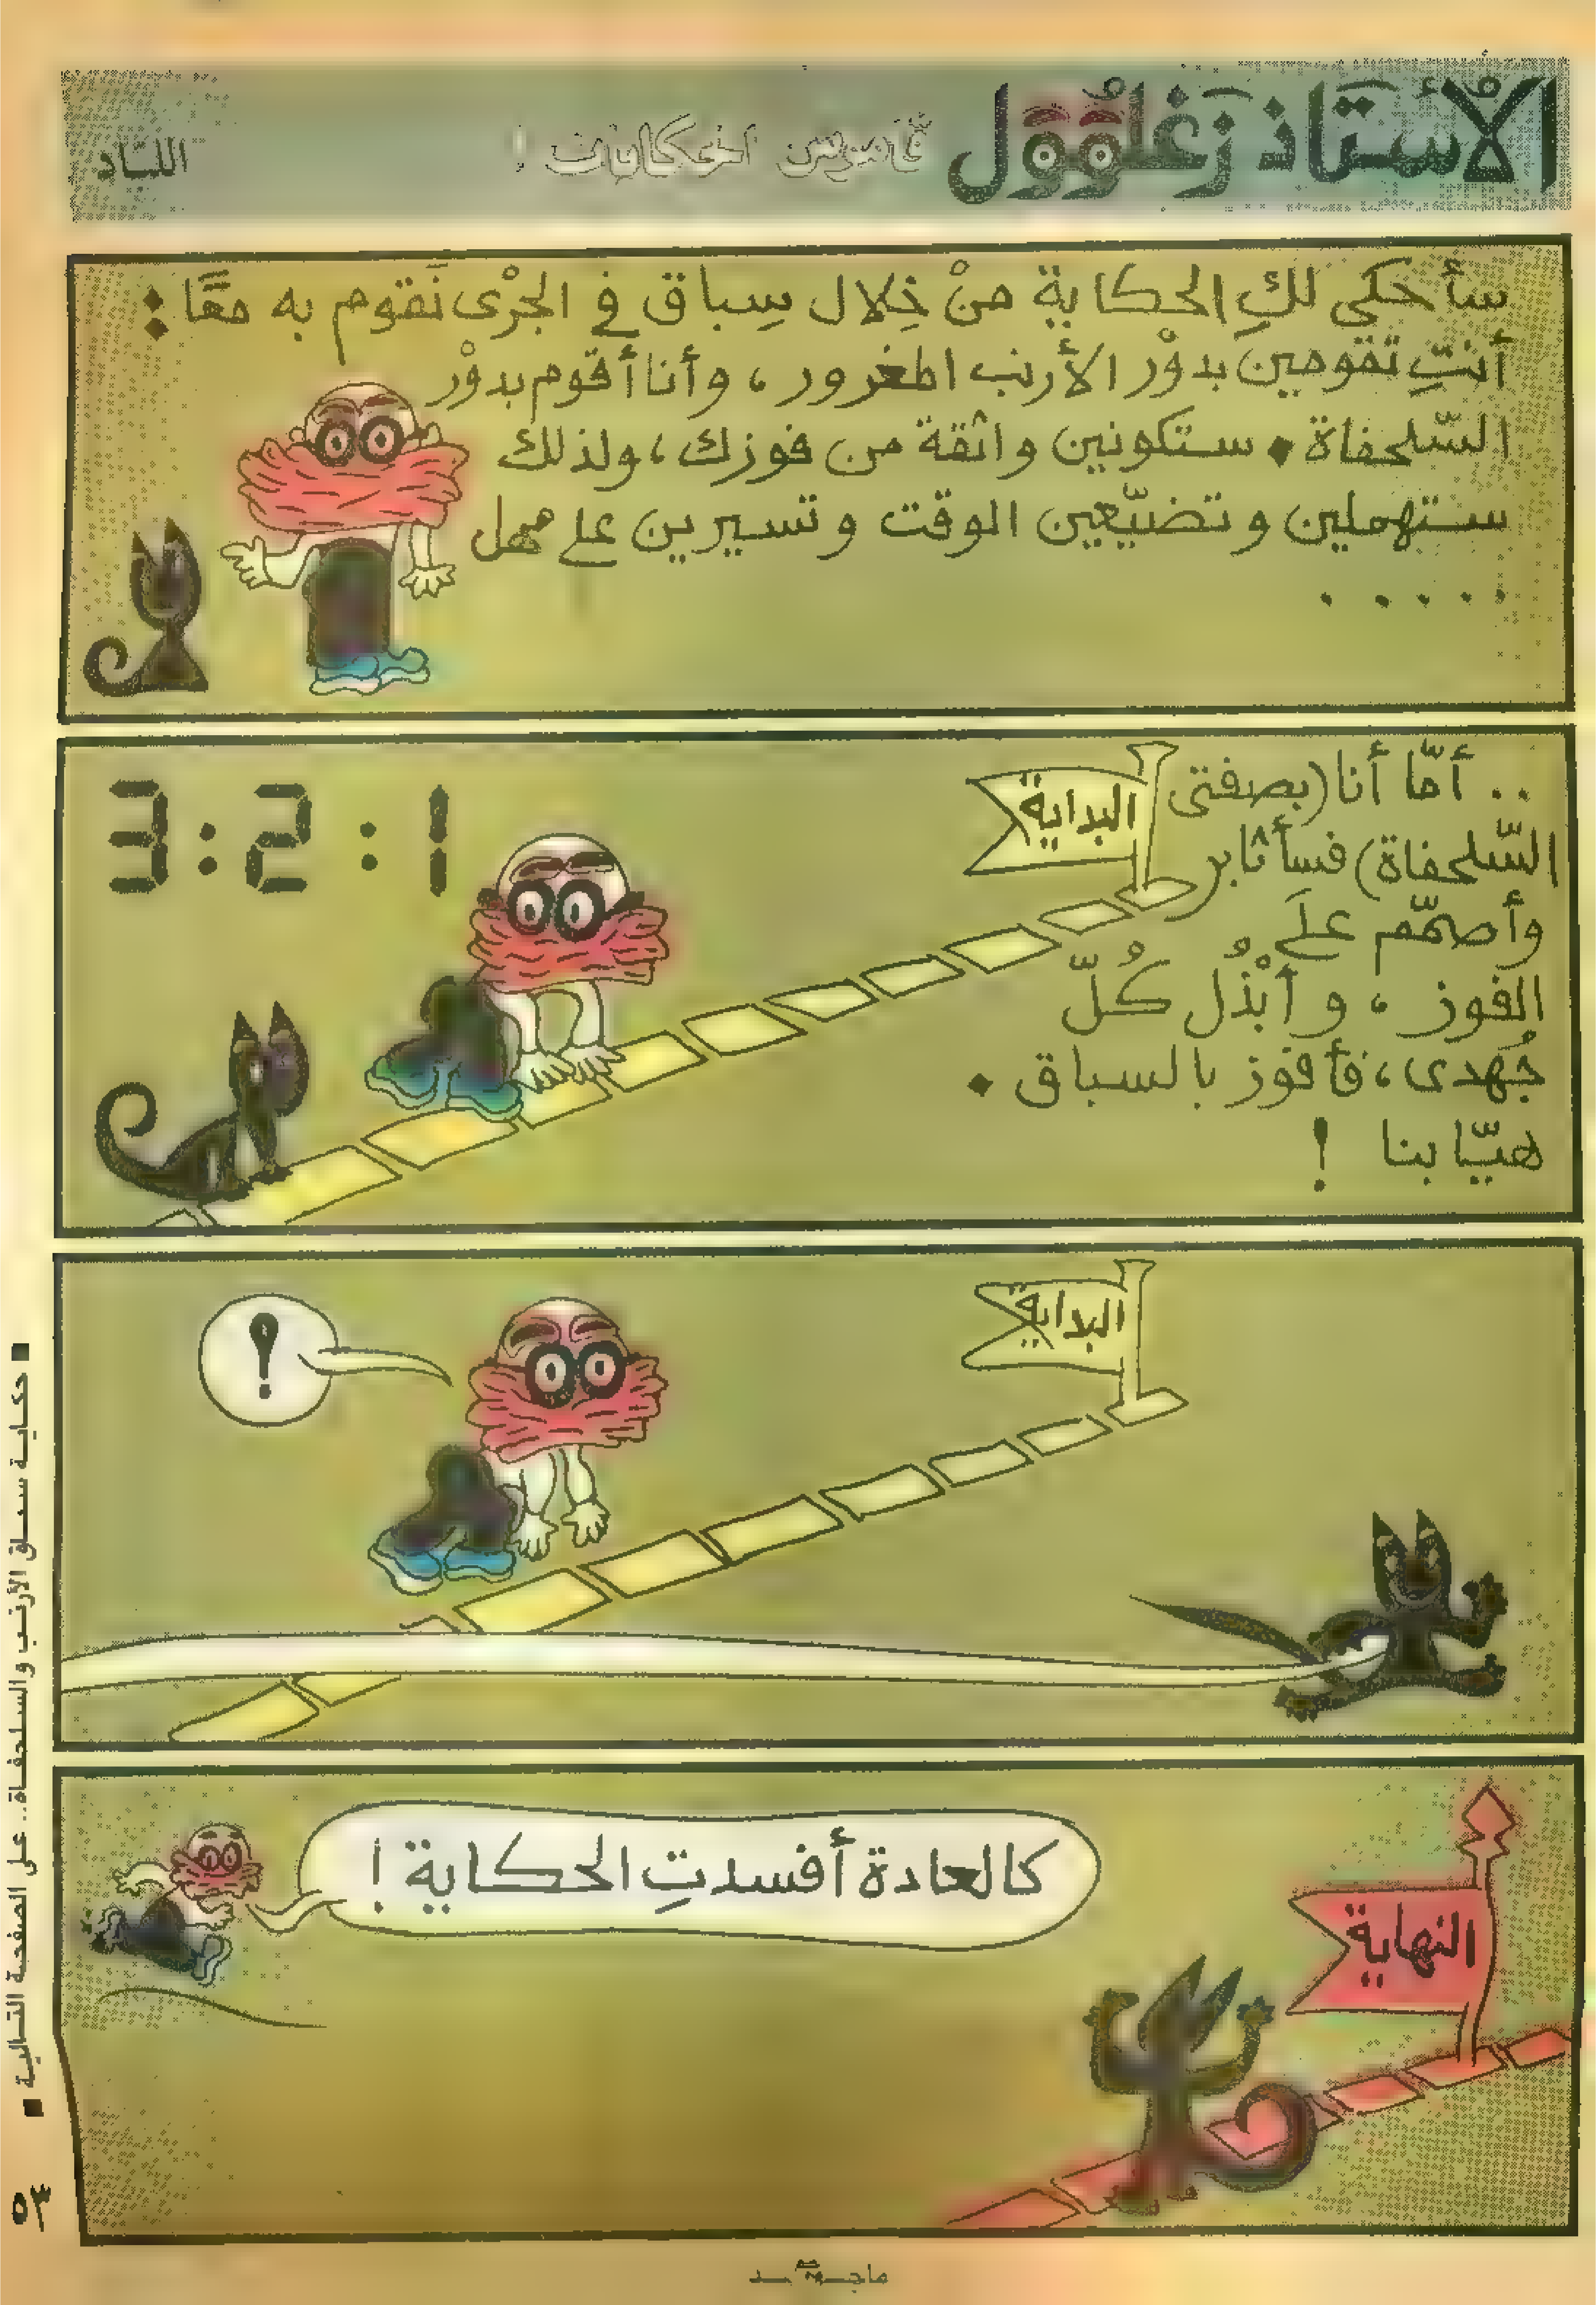 الأُستَاذ زَغلُوُول
قاموس الحكايات !
اللبّاد
سأحكي لكِ الحكاية منْ خِلال سِباق في الجرْى نَقوم به معًا :
أنتِ تقومين بدوْر الأرنب المغرور ، وأنا أقوم بدوْر
السّلحفاة . ستكونين واثقة من فوزك ، ولذلك
ستهملين وتضيّعين الوقت وتسيرين على مهل
. . . . .
.. أمّا أنا (بصفتى
السّلحفاة) فسأثابر
وأصمّم علَى
الفوز ، وأبْذُل كُلّ
جُهدى ، فأفوز بالسباق .
هيّا بنا !
البداية
3:2:1
البداية
!
كالعادة أفسدتِ الحكاية !
النهاية
■ حكاية سباق الأرنب والسلحفاة.. على الصفحة التالية ■
٥٣
ماجد